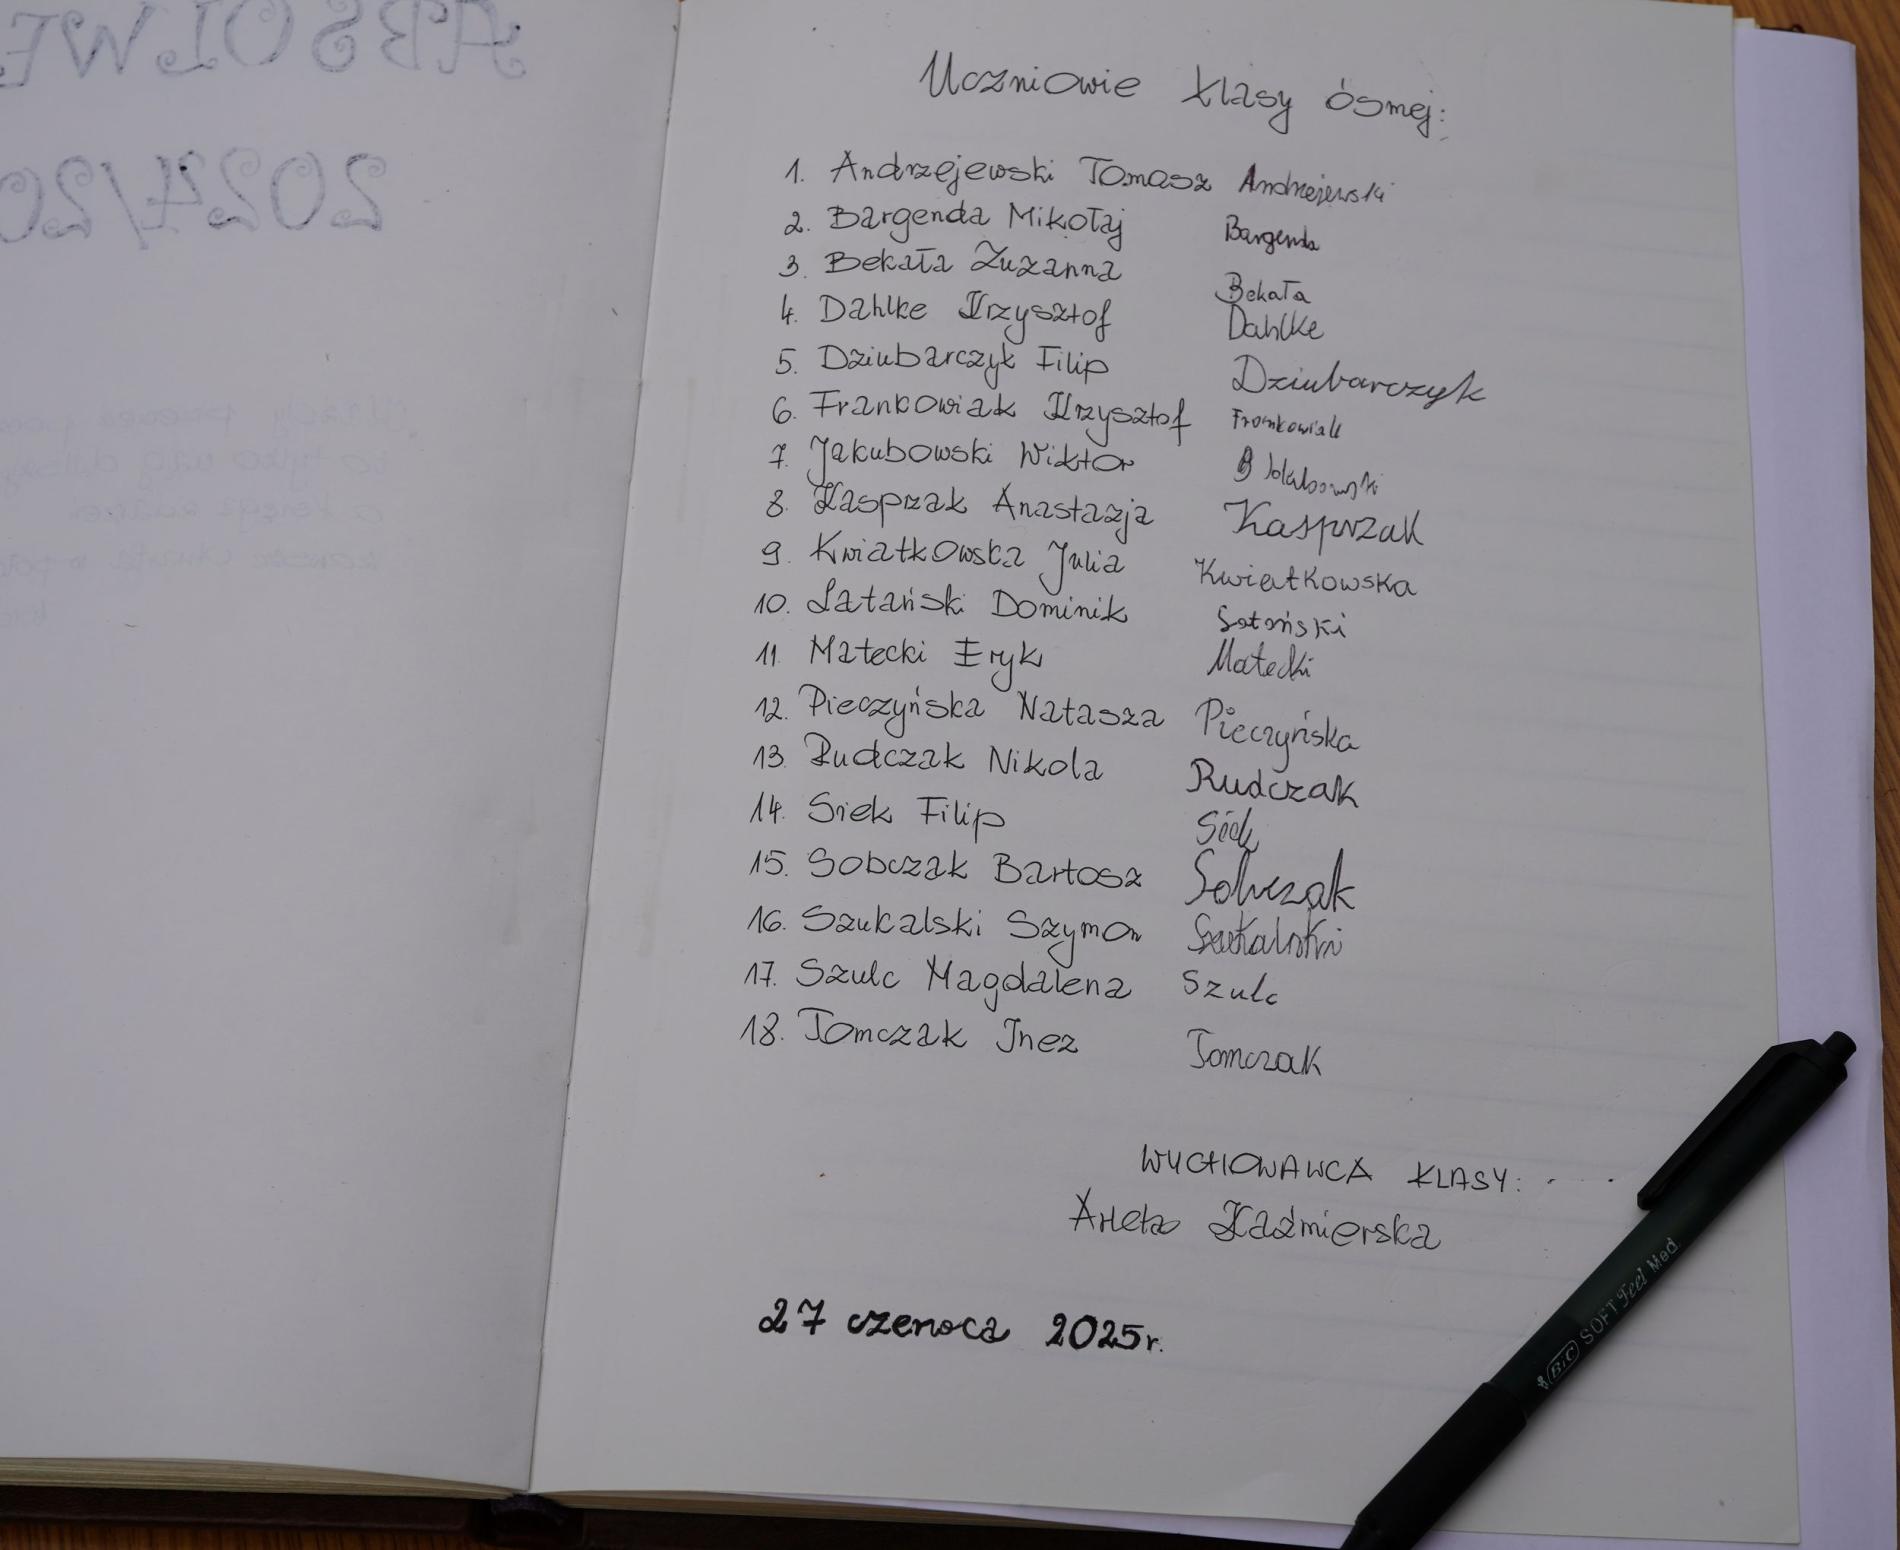 ABSOLWE
2024/20
Uczniowie klasy ósmej:
1. Andrzejewski Tomasz Andrzejewski
2. Bargenda Mikołaj Bargenda
3. Bekała Zuzanna Bekała
4. Dahlke Krzysztof Dahlke
5. Dziubarczyk Filip Dziubarczyk
6. Frankowiak Krzysztof Frankowiak
7. Jakubowski Wiktor Jakubowski
8. Kasprzak Anastazja Kasprzak
9. Kwiatkowska Julia Kwiatkowska
10. Latański Dominik Latański
11. Matecki Eryk Matecki
12. Pieczyńska Natasza Pieczyńska
13. Rudczak Nikola Rudczak
14. Siek Filip Siek
15. Sobczak Bartosz Sobczak
16. Szukalski Szymon Szukalski
17. Szulc Magdalena Szulc
18. Tomczak Inez Tomczak
WYCHOWAWCA KLASY:
Arleta Kaźmierska
27 czerwca 2025r.
BIC SOFT Feel Med.